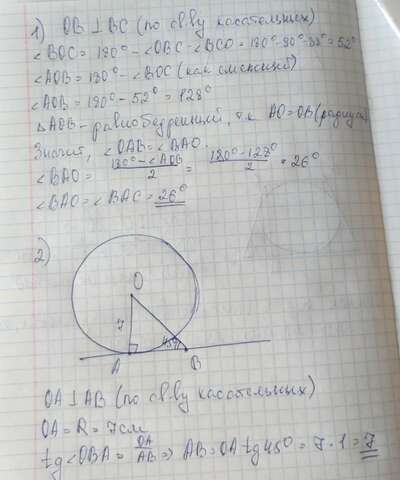 1) OB ⊥ BC (по св-ву касательных)
∠BOC = 180° - ∠OBC - ∠BCO = 180° - 90° - 38° = 52°
∠AOB = 180° - ∠BOC (как смежный)
∠AOB = 180° - 52° = 128°
△AOB - равнобедренный, т.к AO = OB (радиусы)
Значит, ∠OAB = ∠BAO.
∠BAO = (180° - ∠AOB)/2 = (180° - 128°)/2 = 26°
∠BAO = ∠BAC = 26°
2)
O
7
45°
A
B
OA ⊥ AB (по св-ву касательных)
OA = R = 7см
tg∠OBA = OA/AB => AB = OA tg45° = 7 · 1 = 7